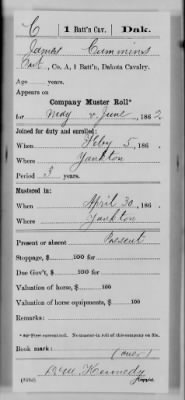 C | 1 Batt'n Cav. | Dak.
James Cummins
Pvt., Co. A, 1 Batt'n, Dakota Cavalry.
Age years.
Appears on
Company Muster Roll*
for May & June, 1862
Joined for duty and enrolled:
When Feby 5, 186 .
Where Yankton
Period 3 years.
Mustered in:
When April 30, 186 .
Where Yankton
Present or absent Present
Stoppage, $ 100 for
Due Gov't, $ 100 for
Valuation of horse, $ 100
Valuation of horse equipments, $ 100
Remarks:
Book mark:
(over)
Kennedy
Copyist.